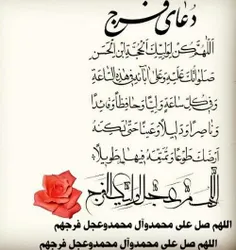 دعای فرج
اللهم کن لولیک الحجة ابن الحسن
صلواتک علیه وعلی آبائه فی هذه الساعة
وفی کل ساعة ولیا وحافظا وقائدا
وناصرا ودلیلا وعینا حتی تسکنه
ارضک طوعا وتمتعه فیها طویلا
اللهم عجل لولیک الفرج
اللهم صل علی محمدوآل محمدوعجل فرجهم
اللهم صل علی محمدوآل محمدوعجل فرجهم